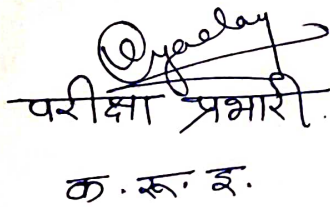 परीक्षा प्रभारी.
क. रू. इ.